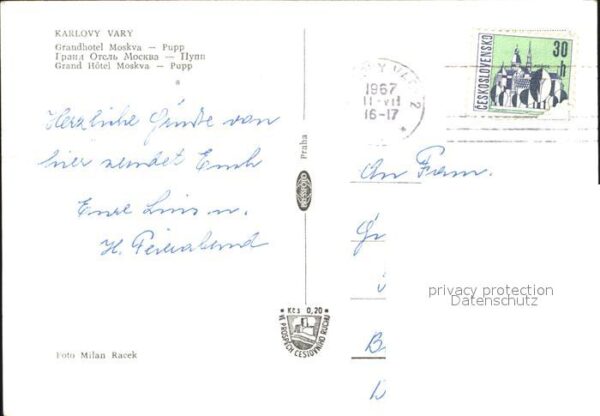 KARLOVY VARY
Grandhotel Moskva — Pupp
Гранд Отель Москва — Пупп
Grand Hôtel Moskva — Pupp
Herzliche Grüße von
hier sendet Euch
Eure Lini u.
H. Feierabend
Foto Milan Racek
Praha
PRESSFOTO
Kčs 0,20
VE PROSPĚCH CESTOVNÍHO RUCHU
Y VARY 2
1967
11-VII
16-17
ČESKOSLOVENSKO
30 h
An Fam.
privacy protection
Datenschutz